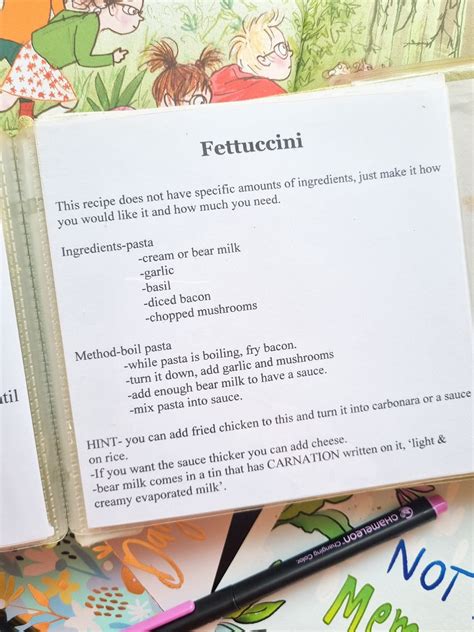 Fettuccini
This recipe does not have specific amounts of ingredients, just make it how
you would like it and how much you need.
Ingredients-pasta
-cream or bear milk
-garlic
-basil
-diced bacon
-chopped mushrooms
Method-boil pasta
-while pasta is boiling, fry bacon.
-turn it down, add garlic and mushrooms
-add enough bear milk to have a sauce.
-mix pasta into sauce.
HINT- you can add fried chicken to this and turn it into carbonara or a sauce
on rice.
-If you want the sauce thicker you can add cheese.
-bear milk comes in a tin that has CARNATION written on it, 'light &
creamy evaporated milk'.
CHAMELEON Changing Color.
NOT